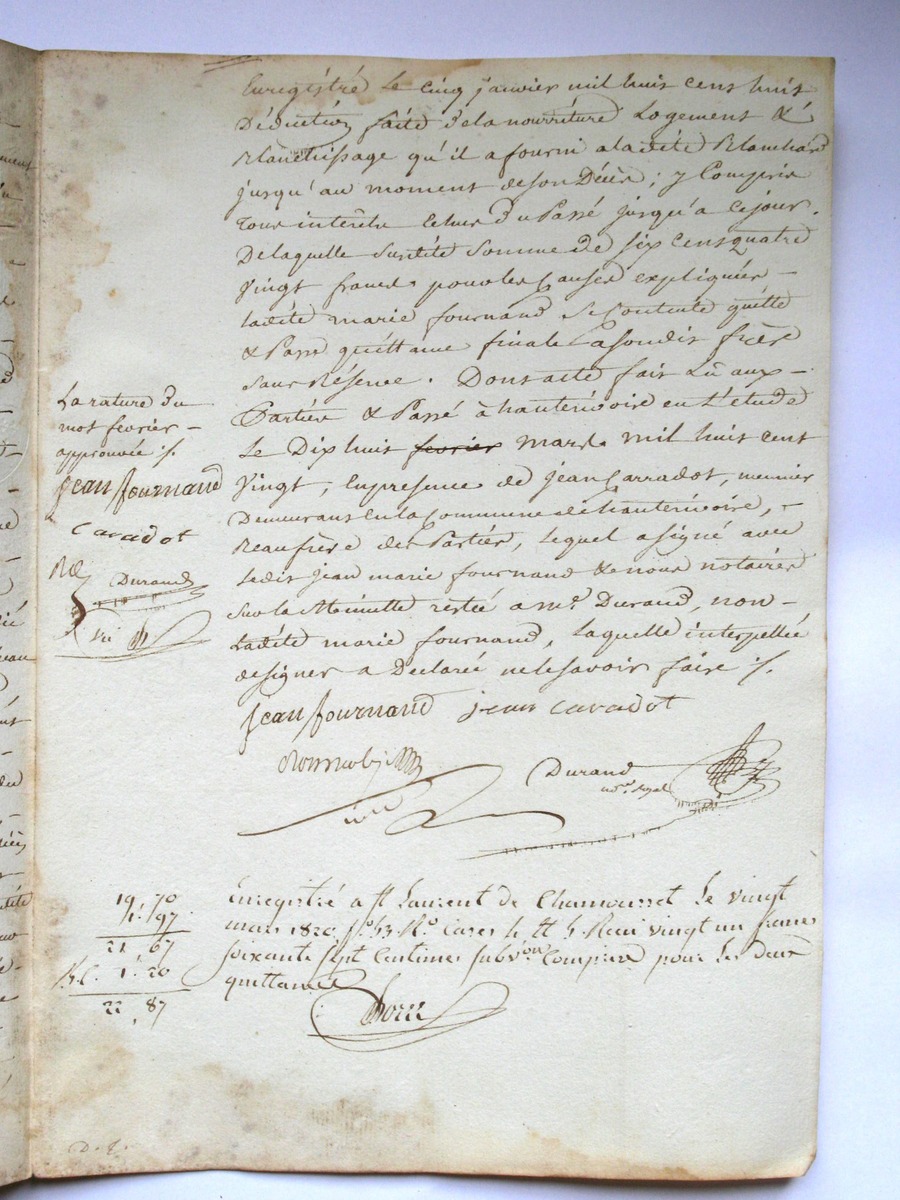 Enregistré le cinq janvier mil huit cens huit
Déduction faite de la nourriture Logement &
Blanchissage qu'il a fourni a ladite Blanchard
jusqu'au moment de son Décès; y Compris
Tous interêts echus du Passé jusqu'a ce jour.
De laquelle susdite Somme de six cens quatre
Vingt francs pour les Causes expliquées –
ladite marie fournand se Contente quitte
& Passe quittance finale a sondit frère
sans Réserve. Dont acte fait Lû aux –
Parties & Passé à hauterivoire en L'etude
Le Dix huit fevrier mars mil huit cent
Vingt, En presence de jean Carradot, meunier
Demeurant en la Commune de hauterivoire, –
Beaufrère des Parties, lequel a signé avec
ledit jean marie fournand & nous notaires
Sur la Minutte restée a me. Durand, non –
Ladite marie fournand, Laquelle interpellée
de signer a Déclaré ne le savoir faire ./.
La rature du
mot fevrier –
approuvée ./.
jean fournand
caradot
Durand
jean fournand jean caradot
Durand
no.re Royal
Enregistré a st Laurent de Chamousset Le vingt
mars 1820 fo. 43 Ro. Cases 4 et 5 Reçu vingt un francs
soixante sept Centimes subv.on Comprise pour les deux
quittances
19,70
1,97
21 67
1.20
22,87
D. f.